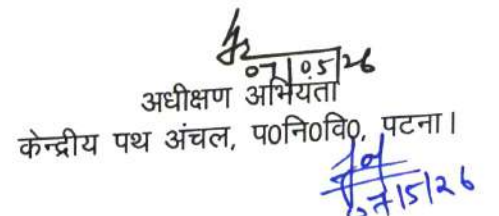 07/05/26
अधीक्षण अभियंता
केन्द्रीय पथ अंचल, प०नि०वि०, पटना।
07/5/26